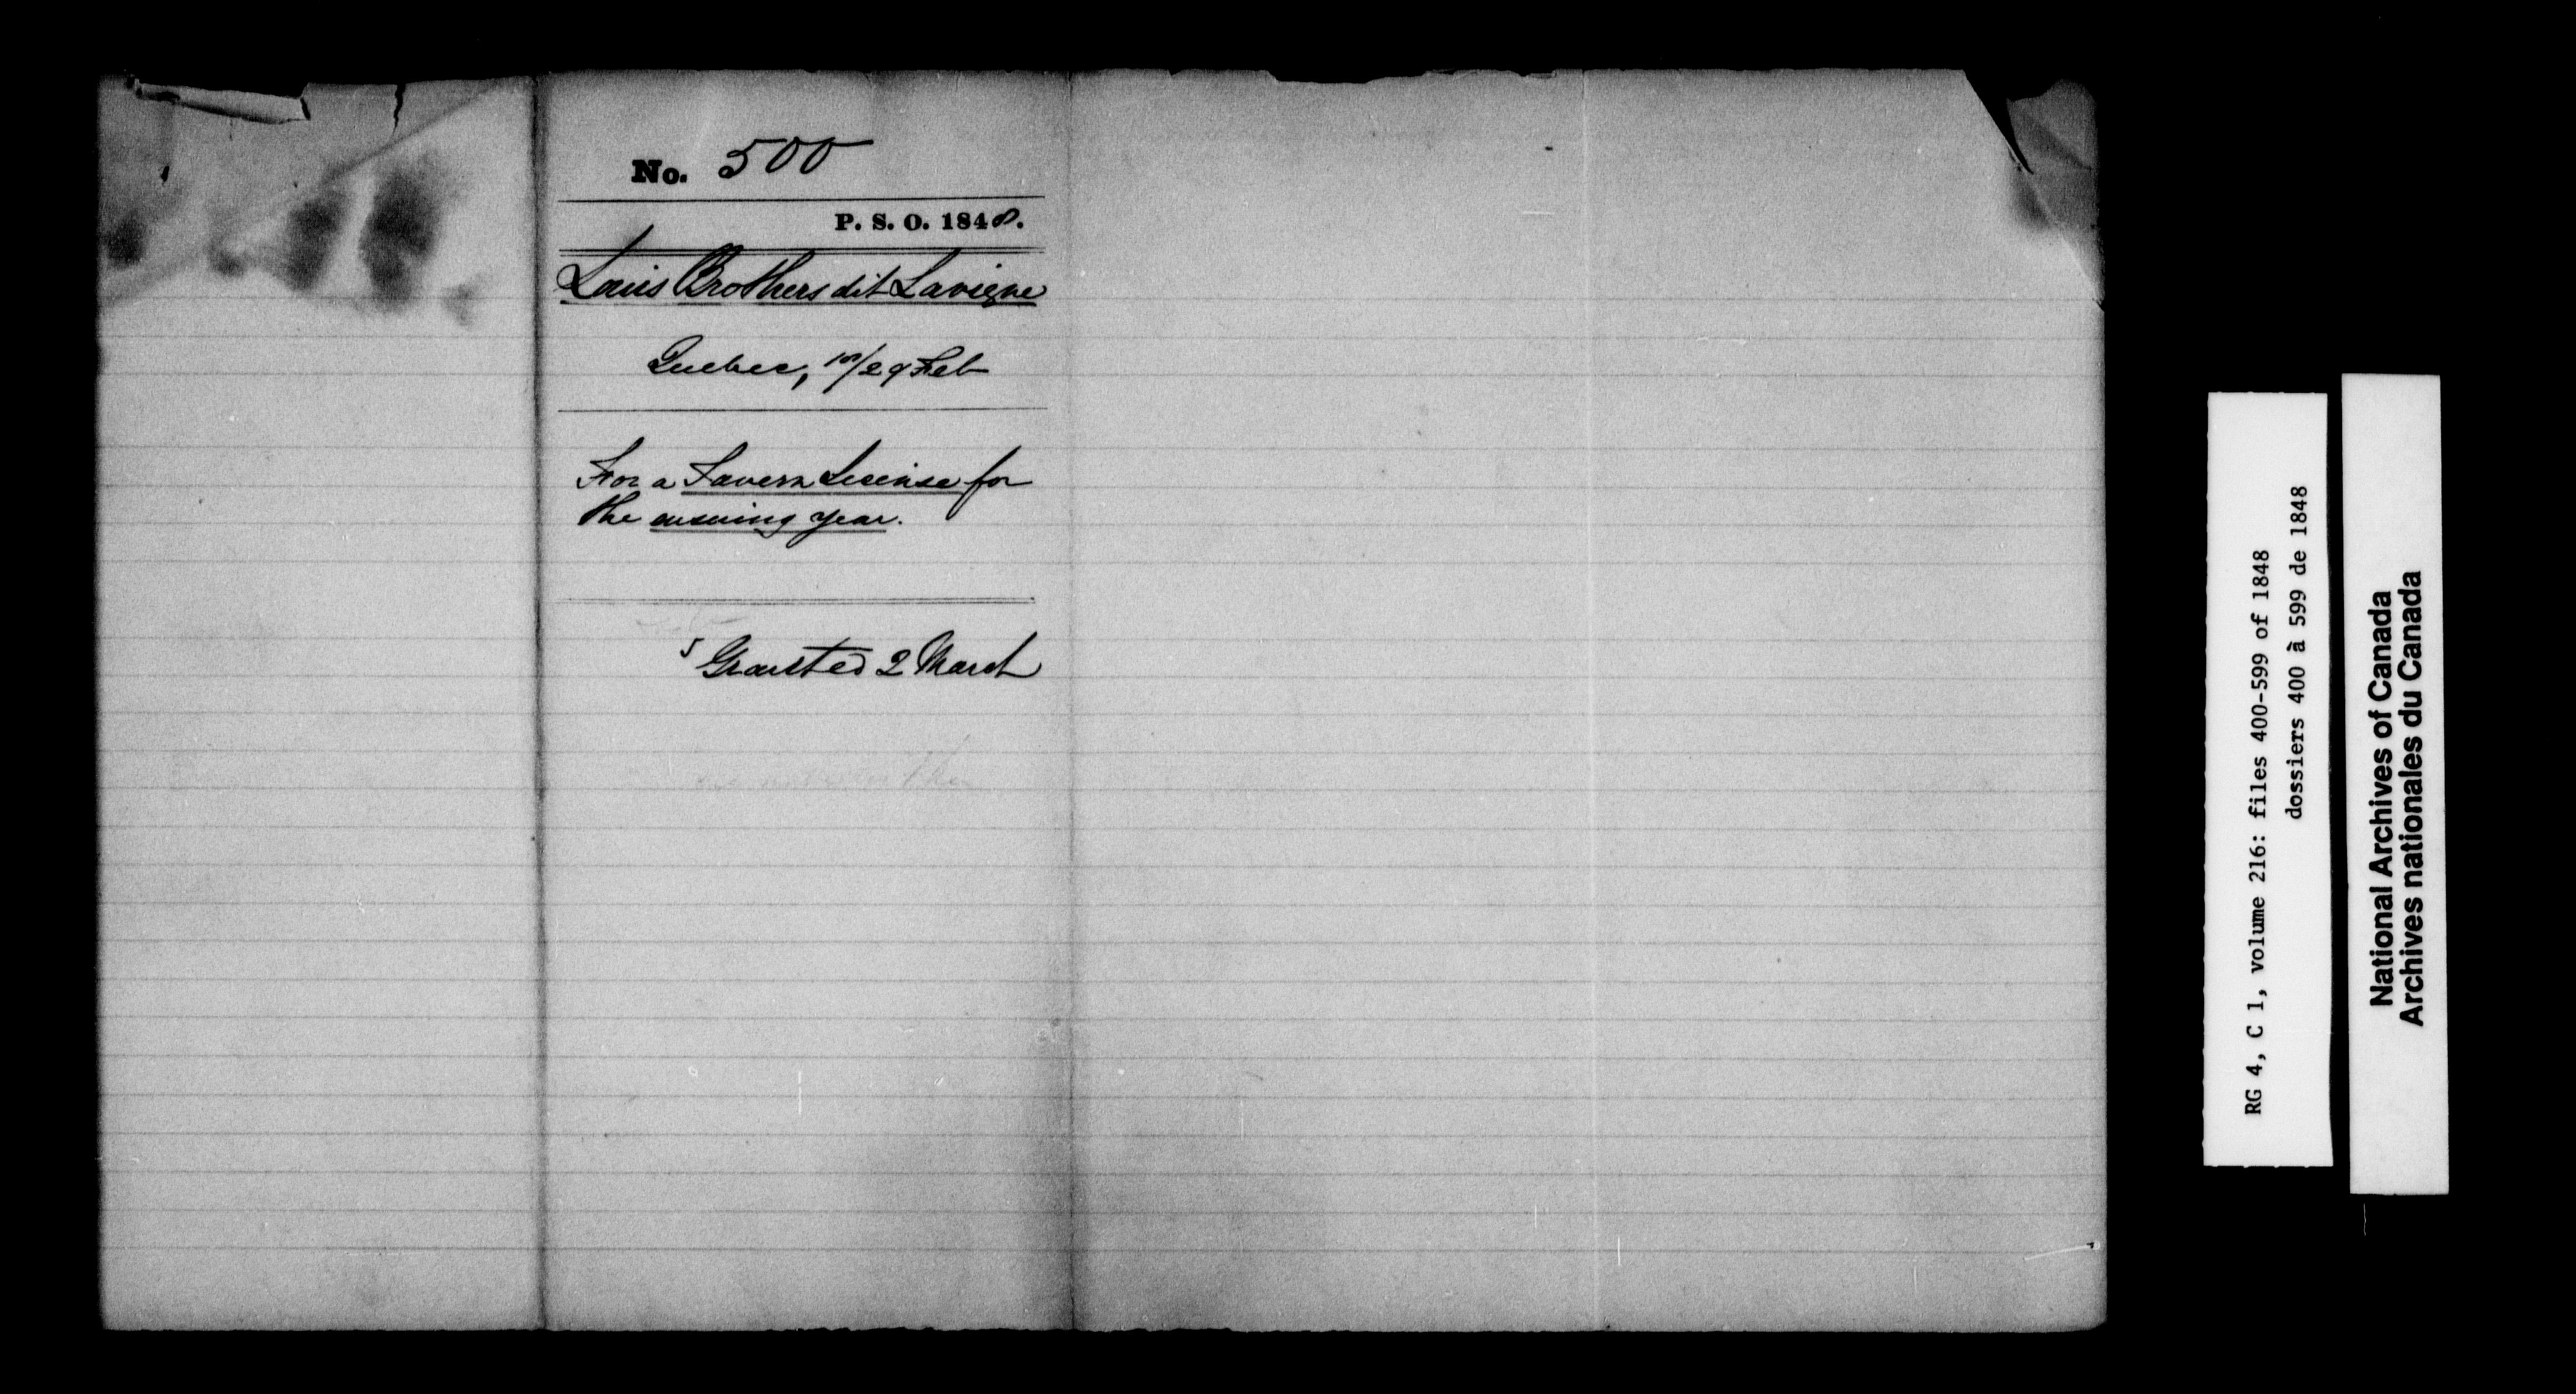 No. 500
P. S. O. 1848.
Louis Brothers dit Lavigne
Quebec, 18/29 Feb
For a Tavern License for
the ensuing year.
Granted 2 March
RG 4, C 1, volume 216: files 400-599 of 1848
dossiers 400 à 599 de 1848
National Archives of Canada
Archives nationales du Canada